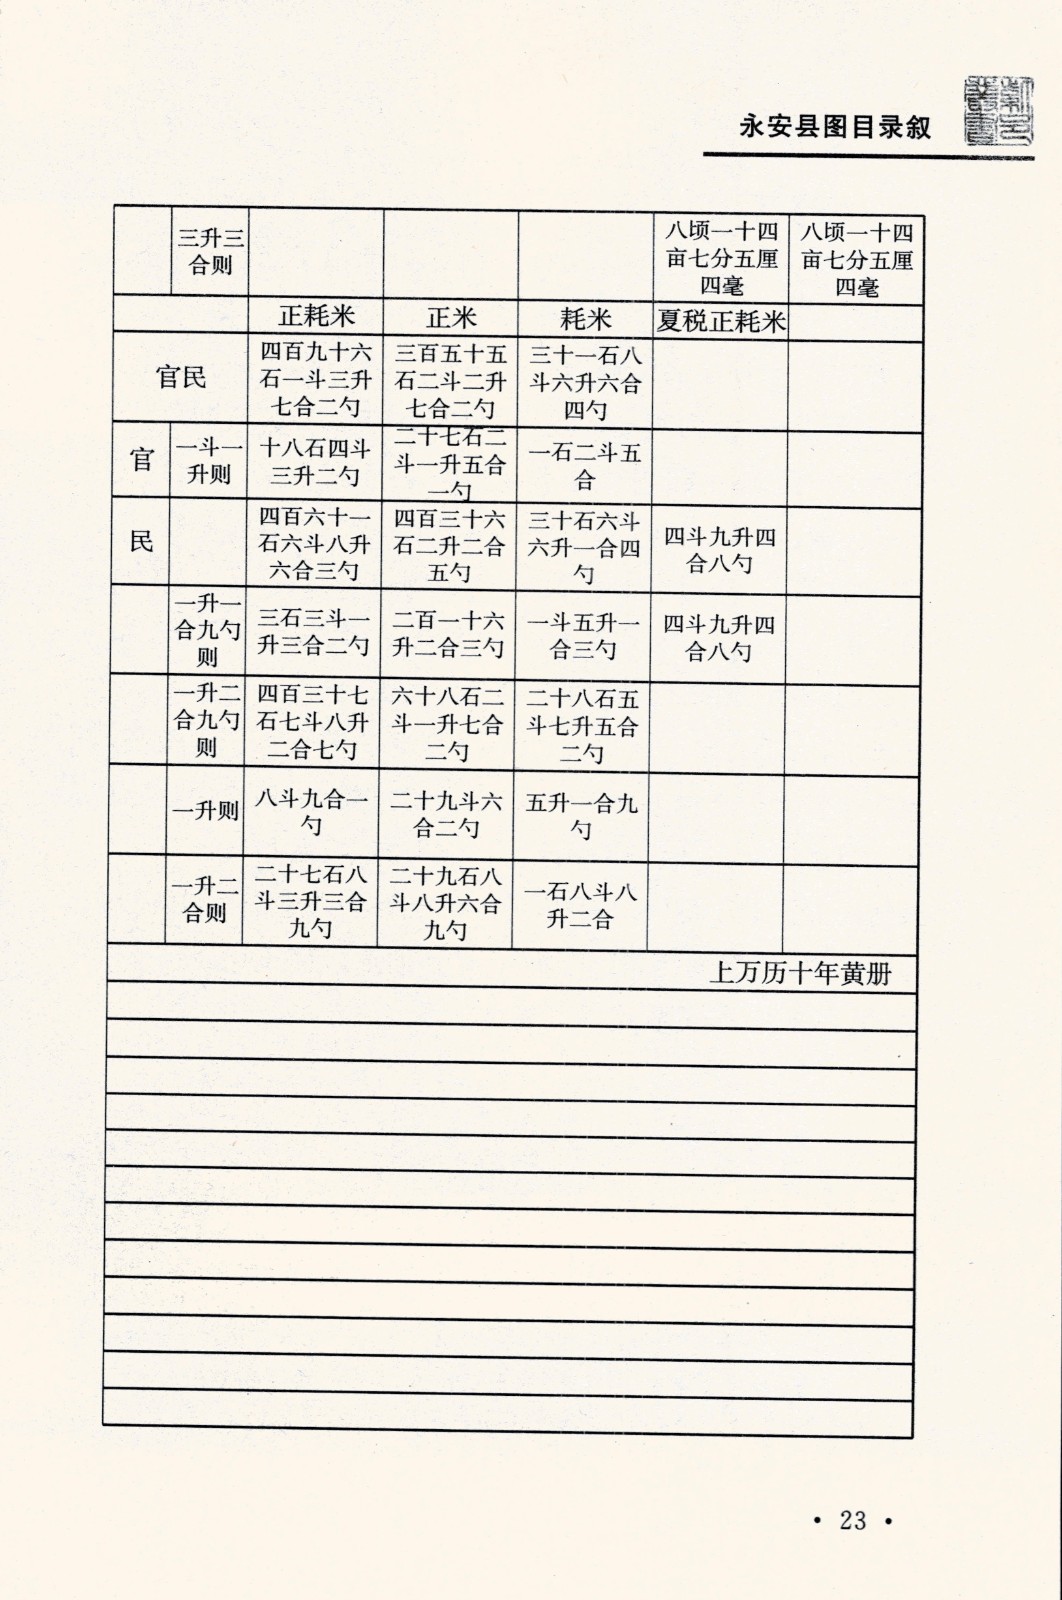 永安县图目录叙
三升三
合则
八顷一十四
亩七分五厘
四毫
八顷一十四
亩七分五厘
四毫
正耗米
正米
耗米
夏税正耗米
官民
四百九十六
石一斗三升
七合二勺
三百五十五
石二斗二升
七合二勺
三十一石八
斗六升六合
四勺
官
一斗一
升则
十八石四斗
三升二勺
二十七石二
斗一升五合
一勺
一石二斗五
合
民
四百六十一
石六斗八升
六合三勺
四百三十六
石二升二合
五勺
三十石六斗
六升一合四
勺
四斗九升四
合八勺
一升一
合九勺
则
三石三斗一
升三合二勺
二百一十六
升二合三勺
一斗五升一
合三勺
四斗九升四
合八勺
一升二
合九勺
则
四百三十七
石七斗八升
二合七勺
六十八石二
斗一升七合
二勺
二十八石五
斗七升五合
二勺
一升则
八斗九合一
勺
二十九斗六
合二勺
五升一合九
勺
一升二
合则
二十七石八
斗三升三合
九勺
二十九石八
斗八升六合
九勺
一石八斗八
升二合
上万历十年黄册
· 23 ·